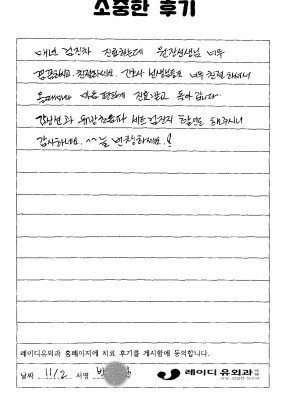 소중한 후기
매년 검진차 진료하는데 원장선생님 너무
꼼꼼하시고 친절하세요. 간호사 선생님들도 너무 친절하셔서
올때마다 마음 편하게 진료받고 돌아갑니다.
갑상선과 유방초음파 세트검진지 할인을 해주시니
감사하네요. ^^ 늘 번창하세요.!
레이디유외과 홈페이지에 치료 후기를 게시함에 동의합니다.
날짜 11/2 서명
레이디유외과